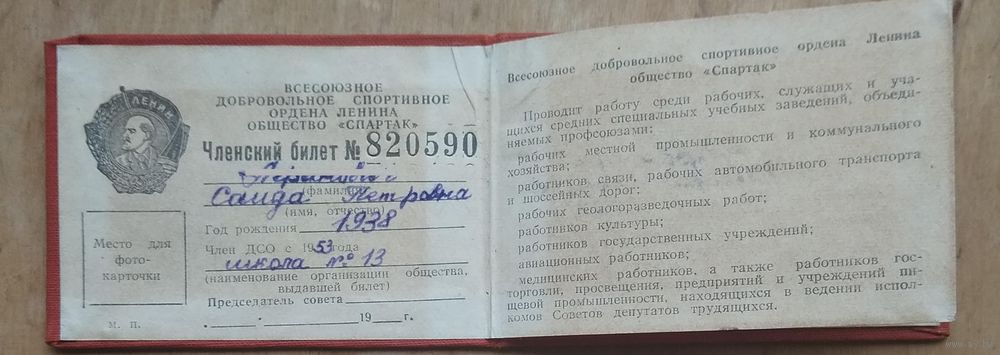 ЛЕНИН
ВСЕСОЮЗНОЕ
ДОБРОВОЛЬНОЕ СПОРТИВНОЕ
ОРДЕНА ЛЕНИНА
ОБЩЕСТВО «СПАРТАК»
Членский билет № 820590
(фамилия)
Саида Петровна
(имя, отчество)
Год рождения 1938
Член ДСО с 1953 года
школа № 13
(наименование организации общества,
выдавшей билет)
Председатель совета
19 г.
Место для
фото-
карточки
М. П.
Всесоюзное добровольное спортивное ордена Ленина
общество «Спартак»
Проводит работу среди рабочих, служащих и уча-
щихся средних специальных учебных заведений, объеди-
няемых профсоюзами:
рабочих местной промышленности и коммунального
хозяйства;
работников связи, рабочих автомобильного транспорта
и шоссейных дорог;
рабочих геологоразведочных работ;
работников культуры;
работников государственных учреждений;
авиационных работников;
медицинских работников, а также работников гос-
торговли, просвещения, предприятий и учреждений пи-
щевой промышленности, находящихся в ведении испол-
комов Советов депутатов трудящихся.